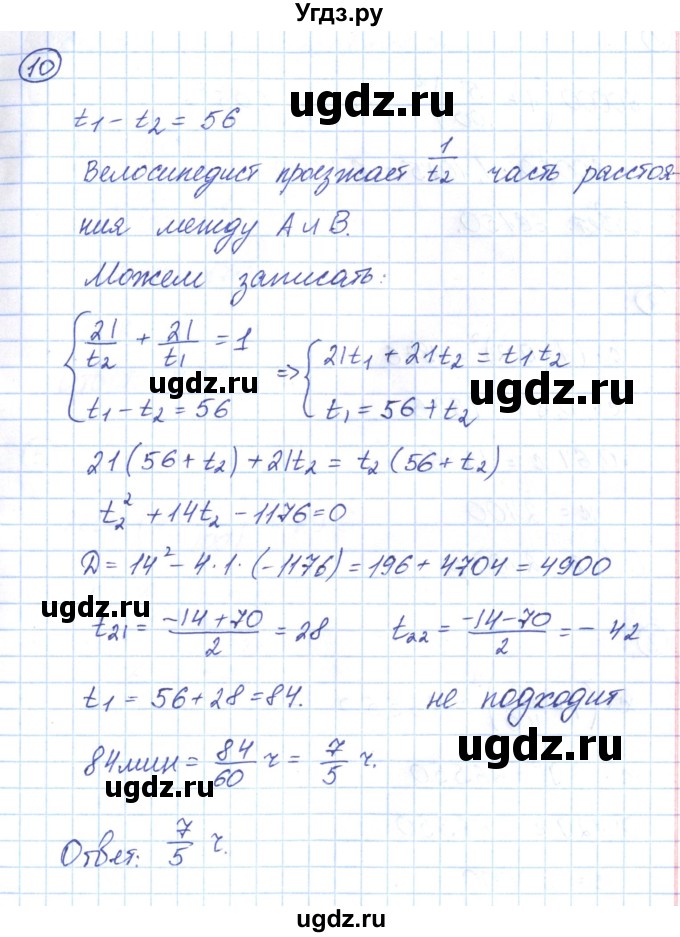 Угдз.ру
10
ugdz.ru
t₁ - t₂ = 56
Велосипедист проезжает 1/t₂ часть расстоя-
ния между A и B.
Можем записать:
{ 21/t₂ + 21/t₁ = 1 => { 21t₁ + 21t₂ = t₁t₂
ugdz.ru ugdz.ru
t₁ - t₂ = 56 t₁ = 56 + t₂
21(56 + t₂) + 21t₂ = t₂(56 + t₂)
t₂² + 14t₂ - 1176 = 0
Д = 14² - 4·1·(-1176) = 196 + 4704 = 4900
ugdz.ru
t₂₁ = (-14 + 70)/2 = 28 t₂₂ = (-14 - 70)/2 = - 42
t₁ = 56 + 28 = 84. не подходит
84 мин = 84/60 ч = 7/5 ч.
ugdz.ru ugdz.ru
Ответ: 7/5 ч.
ugdz.ru